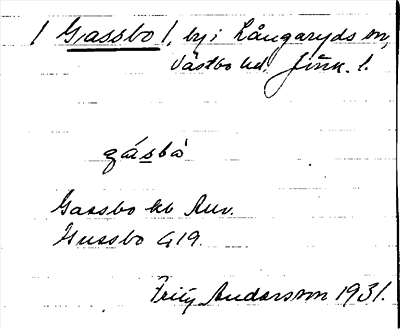 [Gassbo], by i Långaryds sn,
Västbo hd, Jönk. l.
gásbò
Gassbo kb Auv.
Hussbo G19.
Fritz Andersson 1931.